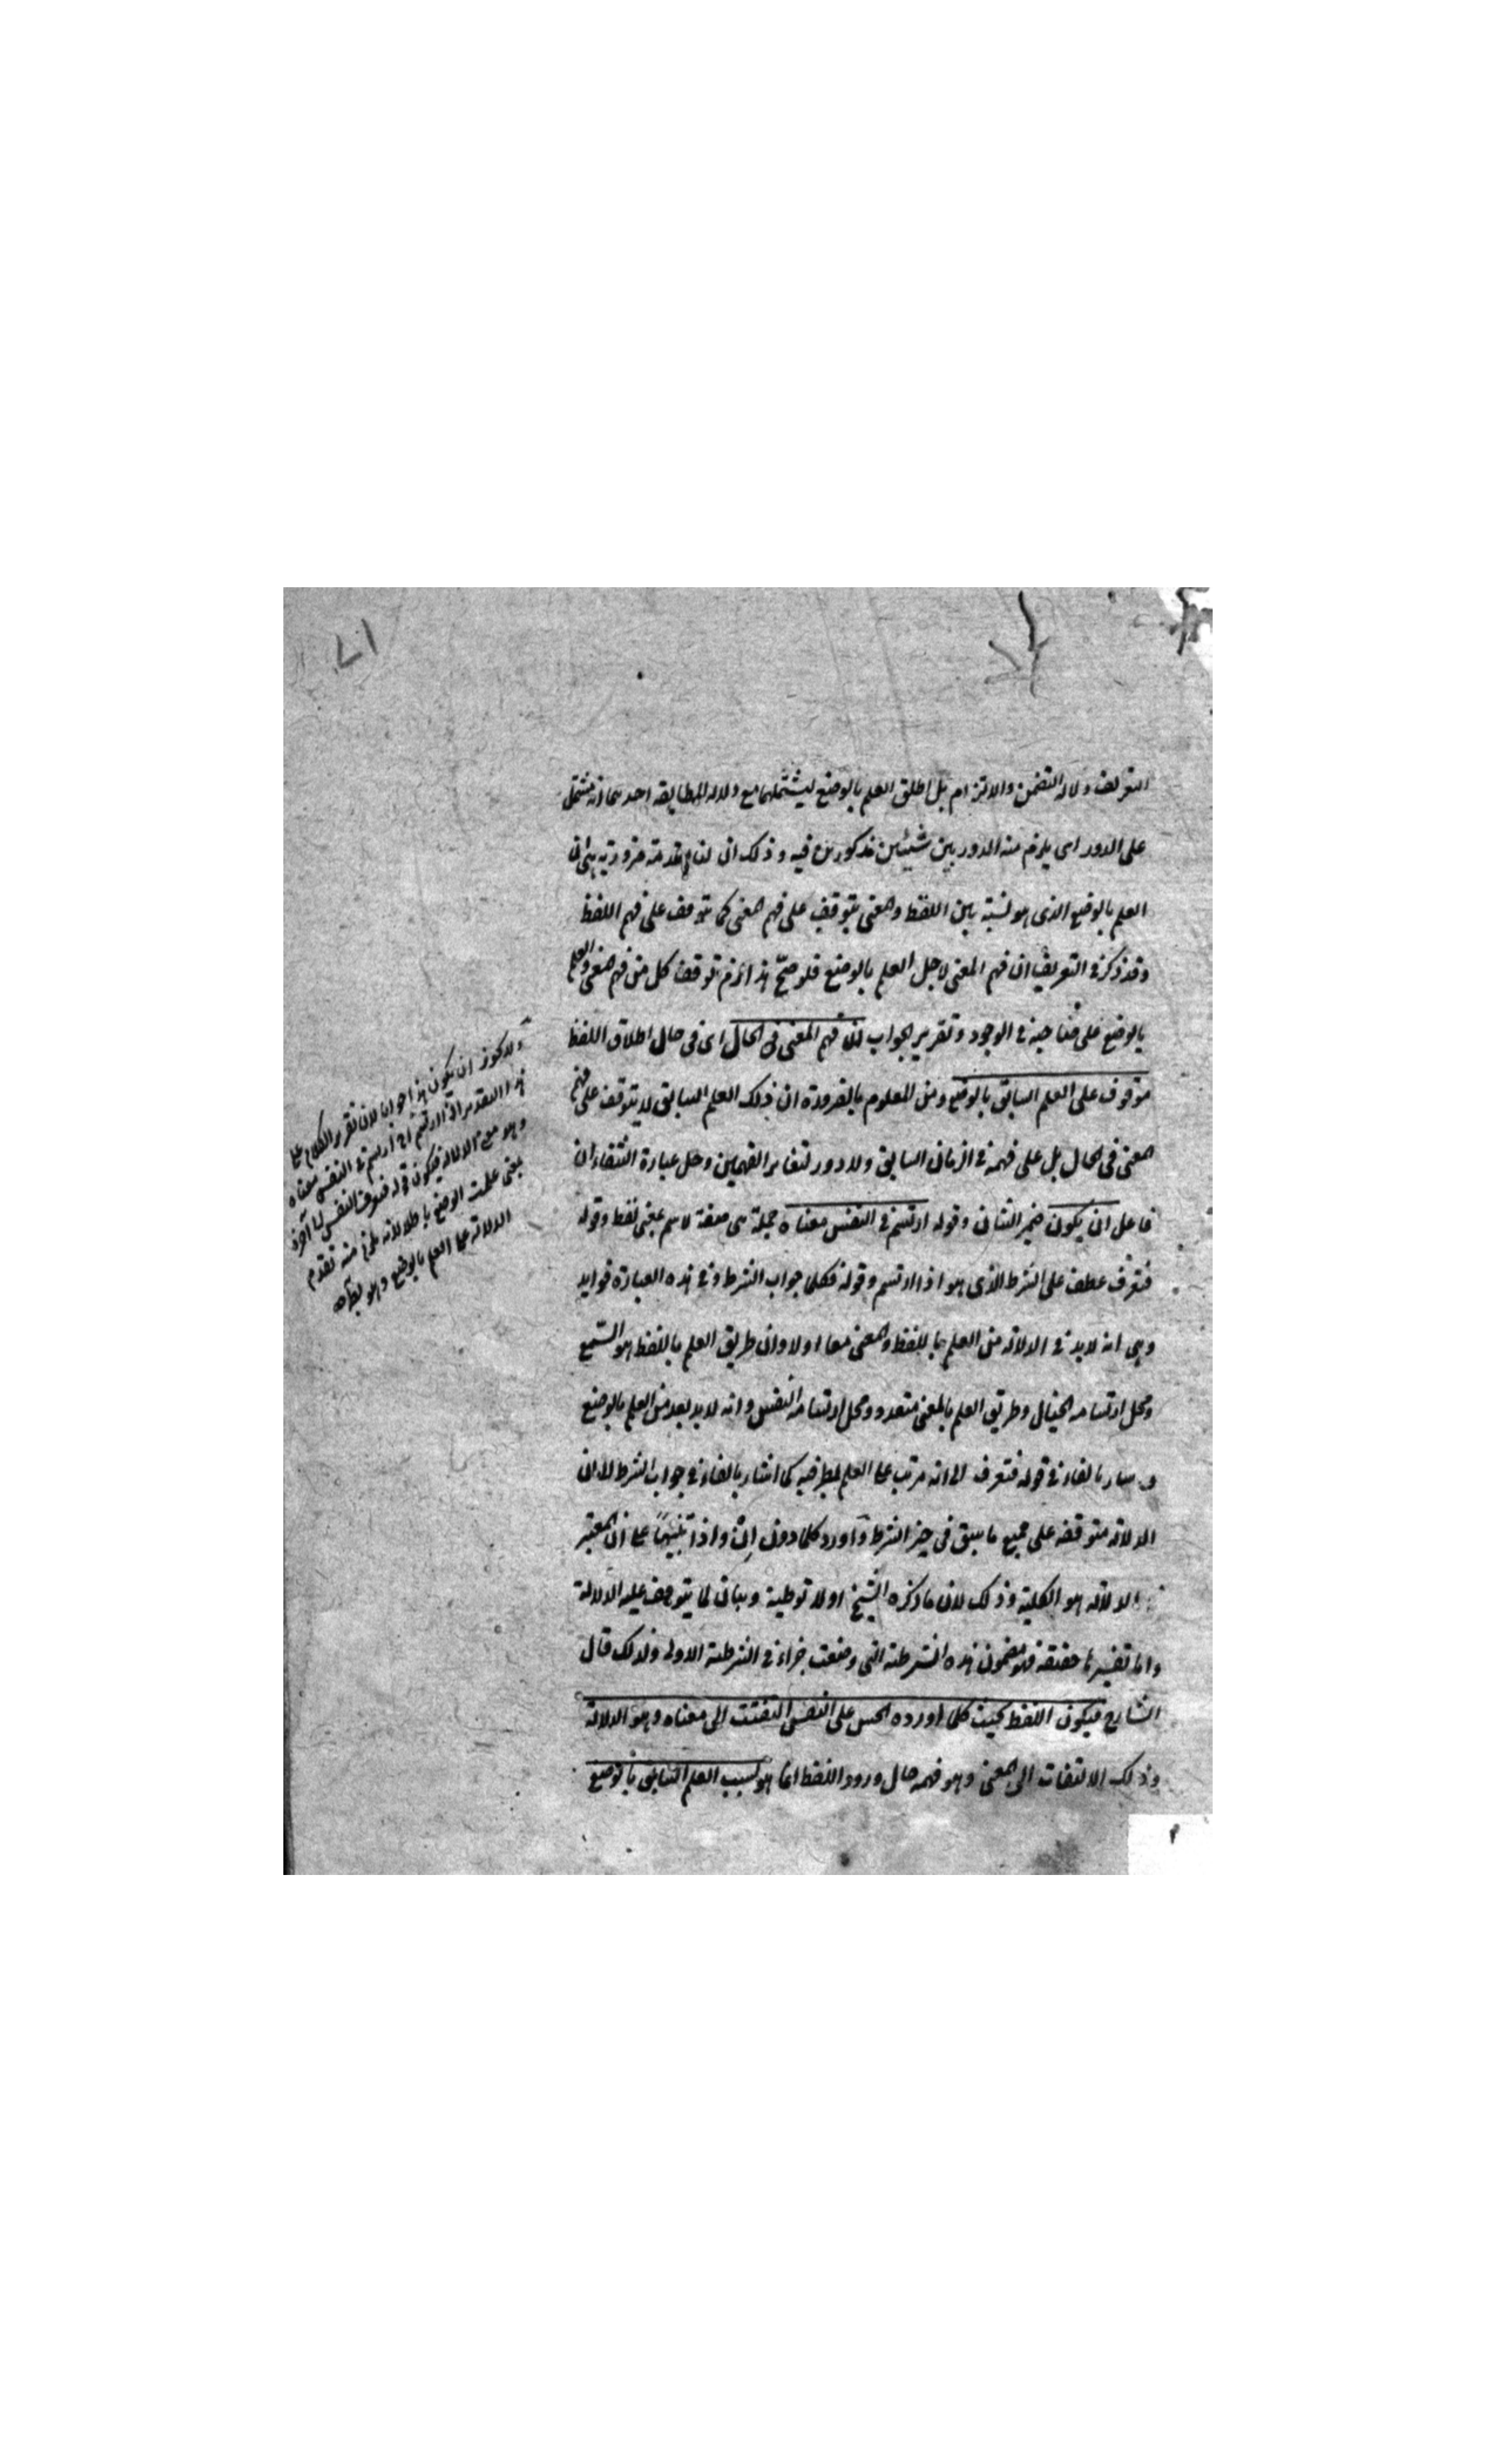 ١٧
التعريف دلالة التضمن والالتزام بل اطلق العلم بالوضع ليشتملهما مع دلالة المطابقة احدهما انه مشتمل
على الدور اى يلزم منه الدور بين شيئين مذكورين فيه وذلك ان لنا مقدمة ضرورية هى ان
العلم بالوضع الذى هو نسبة بين اللفظ والمعنى يتوقف على فهم المعنى كما يتوقف على فهم اللفظ
وقد ذكر فى التعريف ان فهم المعنى لاجل العلم بالوضع فلو صحّ هذا لزم توقف كل من فهم المعنى والعلم
بالوضع على صاحبه فى الوجود وتقرير الجواب ان فهم المعنى فى الحال اى فى حال اطلاق اللفظ
موقوف على العلم السابق بالوضع ومن المعلوم بالضرورة ان ذلك العلم السابق لا يتوقف على فهم
المعنى فى الحال بل على فهمه فى الزمان السابق ولا دور لتغاير الفهمين وحل عبارة الشفاء ان
فاعل ان يكون ضمير الشان وقوله ارتسم فى النفس معناه جملة هى صفة لاسم بمعنى لفظ وقوله
فتعرف عطف على الشرط الذى هو اذا ارتسم وقوله فكلما جواب الشرط وفى هذه العبارة فوايد
وهى انه لابد فى الدلالة من العلم باللفظ والمعنى معا اولا وان طريق العلم باللفظ هو السّمع
ومحل ارتسامه الخيال وطريق العلم بالمعنى متعدد ومحل ارتسامه النفس وانه لابد بعد من العلم بالوضع
بالفاء فى قوله فتعرف الى انه مرتب على العلم بطرفيه كما اشار بالفاء فى جواب الشرط الى ان
الدلالة متوقفة على جميع ما سبق فى حيز الشرط واورد كلما دون ان واذا تنبيهًا على ان المعتبر
الدلالة هو الكلية وذلك لان ما ذكره الشيخ اولا توطية وبيان لما يتوقف عليه الدلالة
واما تفسيرها حقيقة فهو مضمون هذه الشرطية التى وضعت جزاء فى الشرطية الاولى ولذلك قال
الشارح فيكون اللفظ بحيث كلما اورده الحس على النفس التفتت الى معناه وهو الدلالة
وذلك الالتفات الى المعنى وهو فهمه حال ورود اللفظ انما هو بسبب العلم السابق بالوضع
ولا يجوز ان يكون هذا جوابا لان تقرير الكلام على
هذا التقدير اذا ارتسم فى النفس معناه
وهو معنى الدلالة فيكون قوله فتعرف النفس
بمعنى علمت الوضع منه تقدم
الدلالة على العلم بالوضع وهو